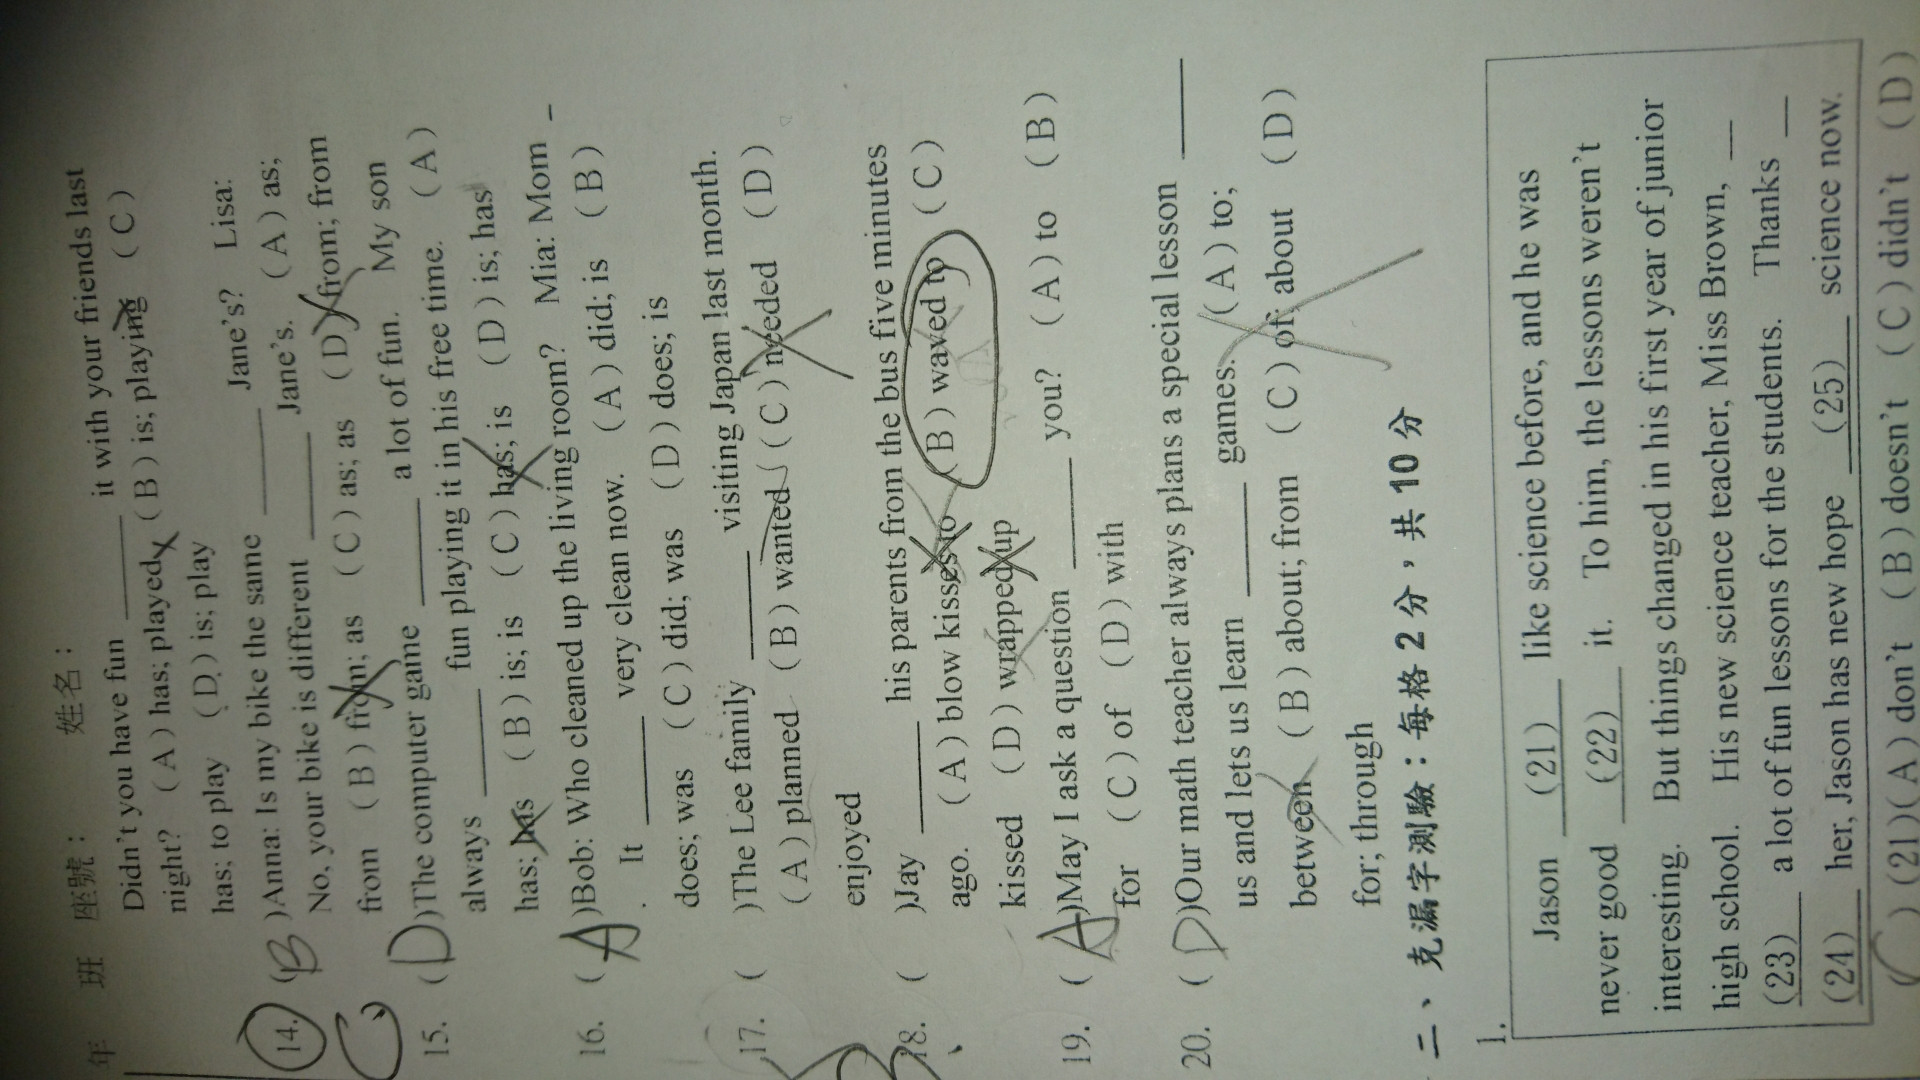 年 班 座號： 姓名：
Didn't you have fun ______ it with your friends last
night? (A) has; played (B) is; playing (C)
has; to play (D) is; play
14. (B)Anna: Is my bike the same ______ Jane's? Lisa:
No, your bike is different ______ Jane's. (A) as;
from (B) from; as (C) as; as (D) from; from
15. (D)The computer game ______ a lot of fun. My son
always ______ fun playing it in his free time. (A)
has; has (B) is; is (C) has; is (D) is; has
16. (A)Bob: Who cleaned up the living room? Mia: Mom _
. It ______ very clean now. (A) did; is (B)
does; was (C) did; was (D) does; is
17. ( )The Lee family ______ visiting Japan last month.
(A) planned (B) wanted (C) needed (D)
enjoyed
18. ( )Jay ______ his parents from the bus five minutes
ago. (A) blow kisses to (B) waved to (C)
kissed (D) wrapped up
19. (A)May I ask a question ______ you? (A) to (B)
for (C) of (D) with
20. (D)Our math teacher always plans a special lesson ______
us and lets us learn ______ games. (A) to;
between (B) about; from (C) of; about (D)
for; through
二、克漏字測驗：每格 2 分，共 10 分
1.
Jason (21) like science before, and he was
never good (22) it. To him, the lessons weren't
interesting. But things changed in his first year of junior
high school. His new science teacher, Miss Brown, _
(23) a lot of fun lessons for the students. Thanks _
(24) her, Jason has new hope (25) science now.
( ) (21)(A) don't (B) doesn't (C) didn't (D)